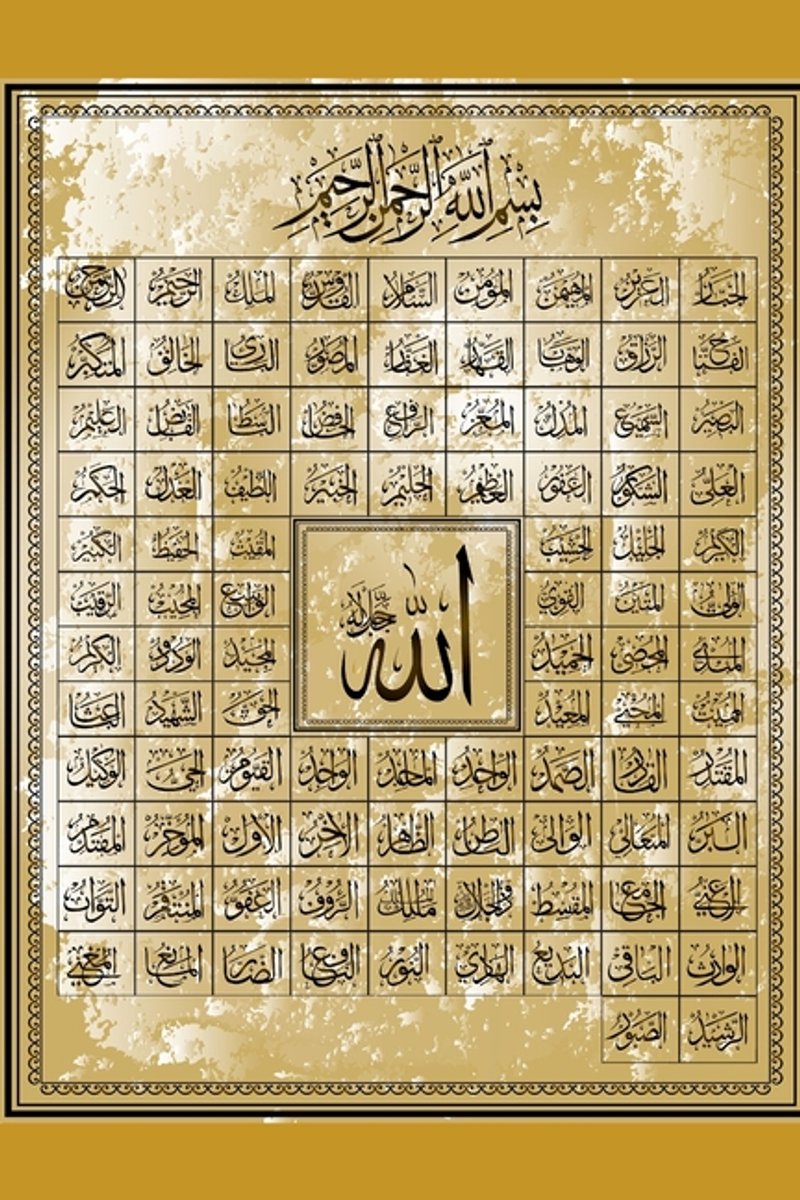 بِسْمِ اللَّهِ الرَّحْمَٰنِ الرَّحِيمِ
الرحمن الرحيم الملك القدوس السلام المؤمن المهيمن العزيز الجبار
المتكبر الخالق البارئ المصور الغفار القهار الوهاب الرزاق الفتاح
العليم القابض الباسط الخافض الرافع المعز المذل السميع البصير
الحكم العدل اللطيف الخبير الحليم العظيم الغفور الشكور العلي
الكبير الحفيظ المقيت الحسيب الجليل الكريم
الرقيب المجيب الواسع القوي المتين الولي
الودود المجيد الحميد المحصي المبدئ
الباعث الشهيد الحق المعيد المحيي المميت
الله جل جلاله
الوكيل الحي القيوم الواجد الماجد الواحد الصمد القادر المقتدر
المقدم المؤخر الأول الآخر الظاهر الباطن الوالي المتعالي البر
التواب المنتقم العفو الرؤوف مالك الملك المقسط الجامع الغني
المغني المانع الضار النافع النور الهادي البديع الباقي الوارث
الرشيد الصبور